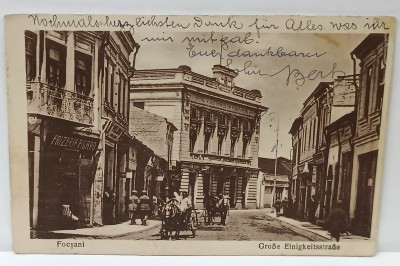 Nochmals herzlichsten Dank für Alles was ihr
mir mitgab!
Euer dankbarer
FRIZERIA FIGARO
Focşani
Große Einigkeitsstraße